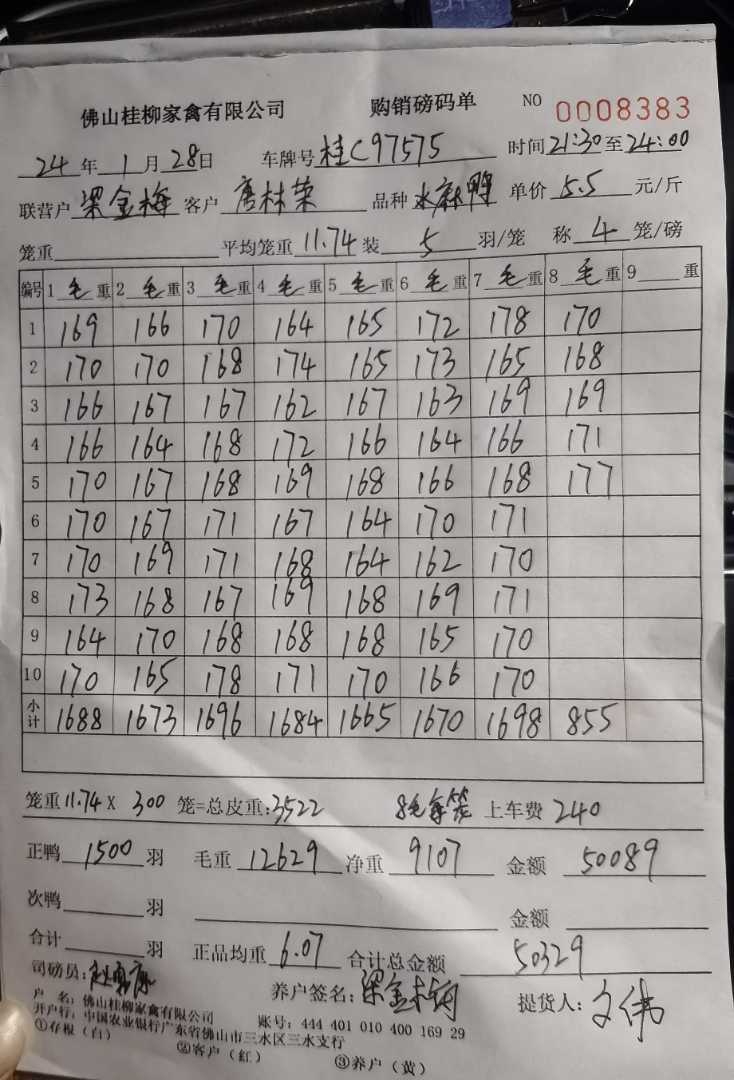 佛山桂柳家禽有限公司 购销磅码单 NO 0008383
24年1月28日 车牌号桂C97575 时间21:30至24:00
联营户梁金梅 客户唐林荣 品种水麻鸭 单价5.5元/斤
笼重 平均笼重11.74装5羽/笼 称4笼/磅
编号 1毛重 2毛重 3毛重 4毛重 5毛重 6毛重 7毛重 8毛重 9重
1 169 166 170 164 165 172 178 170
2 170 170 168 174 165 173 165 168
3 166 167 167 162 167 163 169 169
4 166 164 168 172 166 164 166 171
5 170 167 168 169 168 166 168 177
6 170 167 171 167 164 170 171
7 170 169 171 168 164 162 170
8 173 168 167 169 168 169 171
9 164 170 168 168 168 165 170
10 170 165 178 171 170 166 170
小计 1688 1673 1696 1684 1665 1670 1698 855
笼重11.74X300笼=总皮重:3522 8毛每笼 上车费240
正鸭1500羽 毛重12629净重9107 金额50089
次鸭羽 金额
合计羽 正品均重6.07 合计总金额50329
司磅员: 养户签名:梁金 提货人:文伟
户 名:佛山桂柳家禽有限公司 账号:444 401 010 400 169 29
开户行:中国农业银行广东省佛山市三水区三水支行
①存根(白) ②客户(红) ③养户(黄)